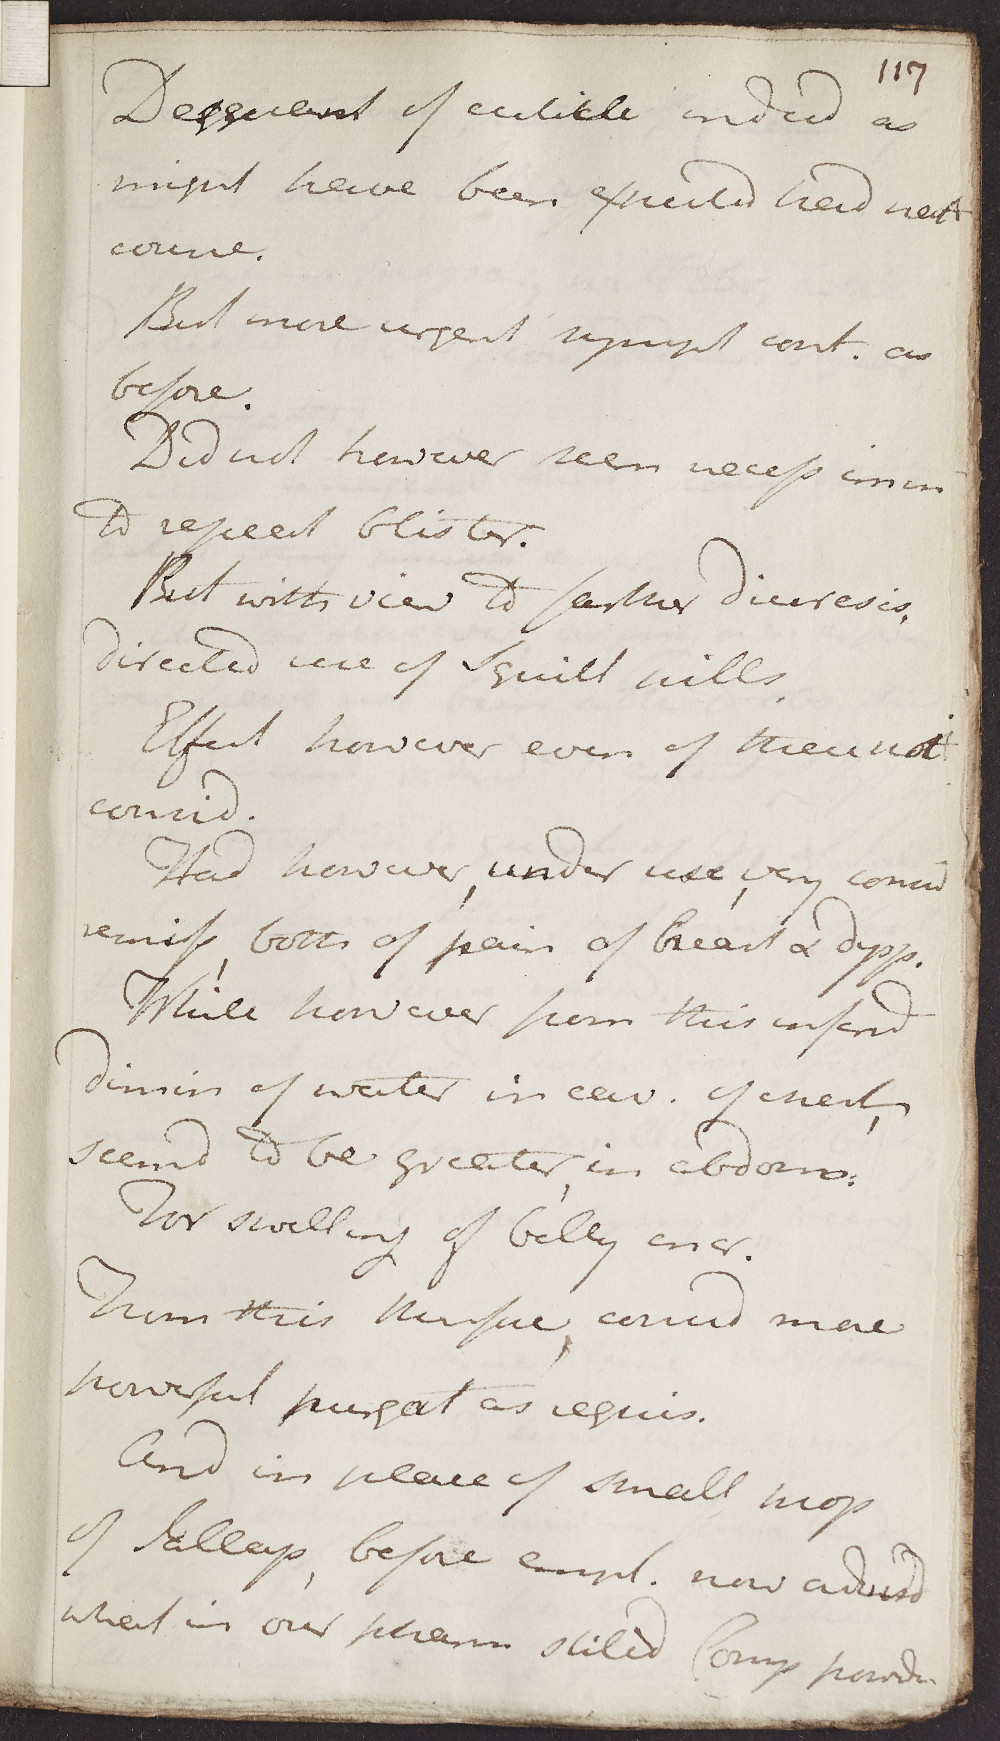 117
Desquamt of cuticle indeed as
might have been expected had not
occurr.
But more urgent sympt cont. as
before.
Did not however seem necess imm
to repeat blister.
But with view to farther diuresis,
directed use of Squill pills.
Effect however even of these not
consid.
Had however, under use, very consid
remiss, both of pain of breast & dysp.
While however from this inferd
dimin of water in cav. of chest,
seemd to be greater, in abdom.
For swelling of belly incr.
From this therefore, consid more
powerful purgat as requis.
And in place of small prop
of Jallap, before empl. now advisd
what in our pharm stiled Comp powdr